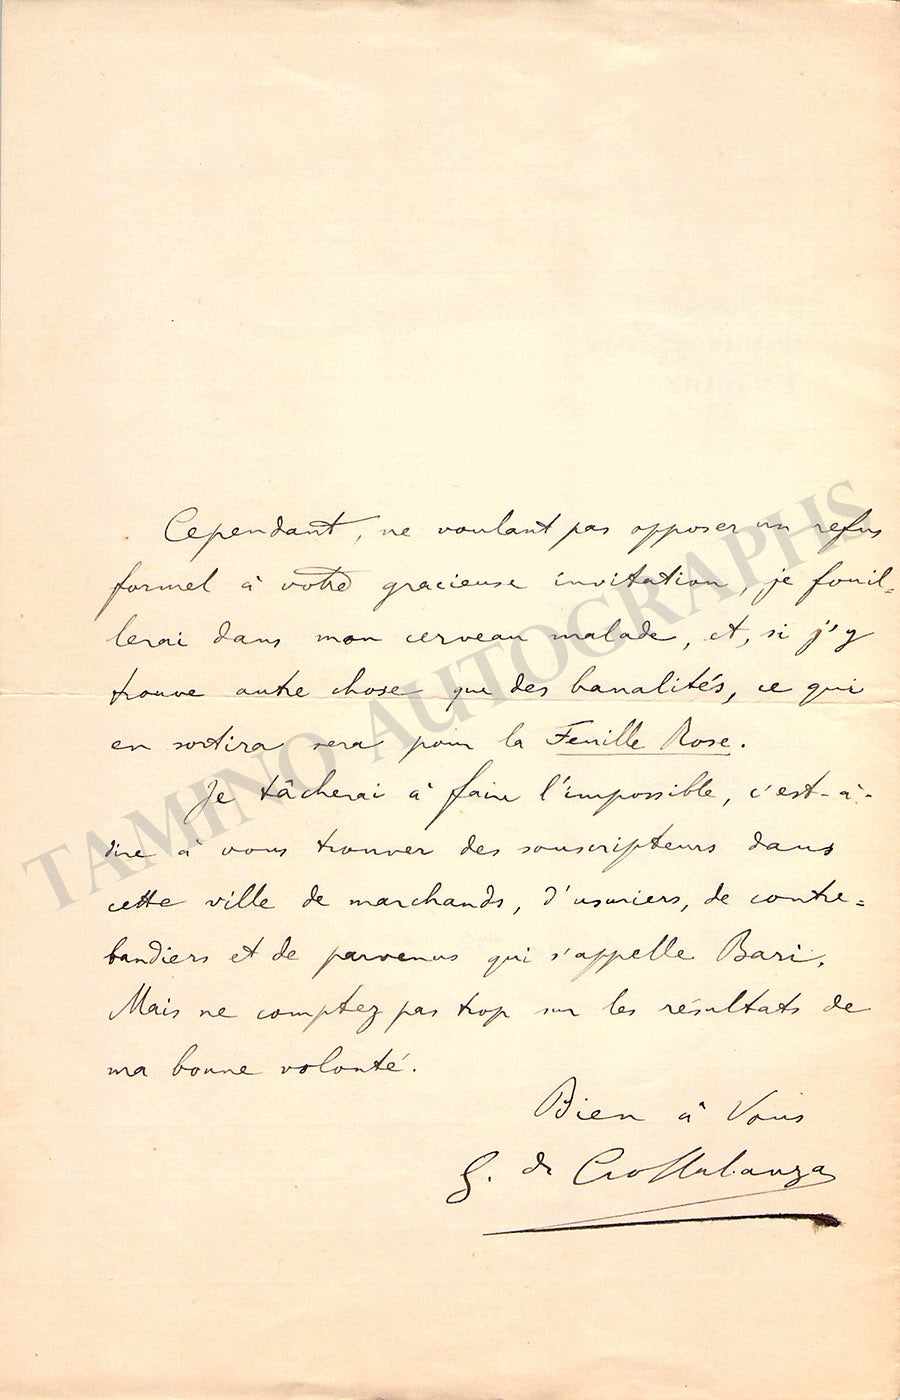 Cependant, ne voulant pas opposer un refus
formel à votre gracieuse invitation, je fouil=
lerai dans mon cerveau malade, et, si j'y
trouve autre chose que des banalités, ce qui
en sortira sera pour la Feuille Rose.
Je tâcherai à faire l'impossible, c'est-à-
dire à vous trouver des souscripteurs dans
cette ville de marchands, d'usuriers, de contre=
bandiers et de parvenus qui s'appelle Bari.
Mais ne comptez pas trop sur les résultats de
ma bonne volonté.
Bien à Vous
G. de Crollalanza
TAMINO AUTOGRAPHS